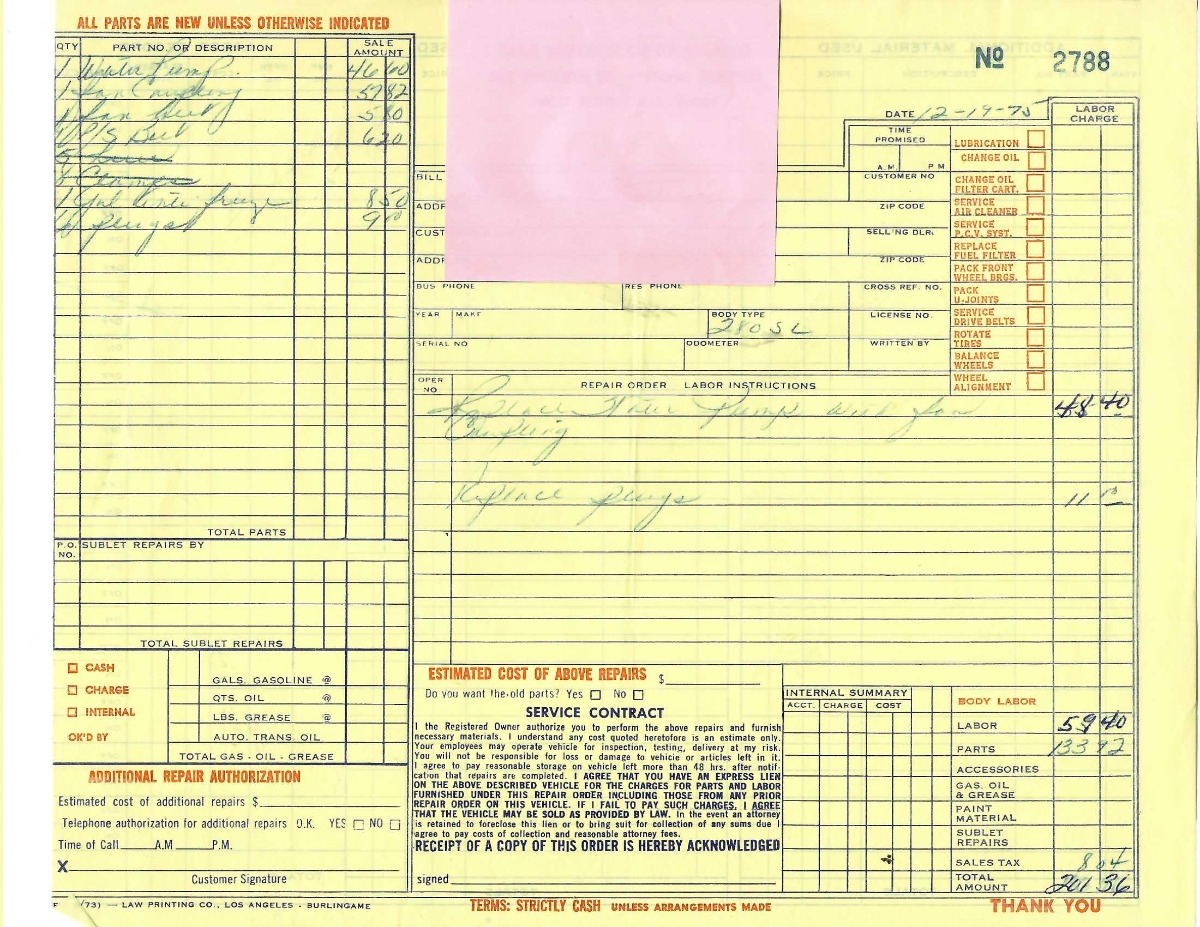 ALL PARTS ARE NEW UNLESS OTHERWISE INDICATED
QTY PART NO. OR DESCRIPTION SALE AMOUNT
1 Water Pump 46 60
1 Fan Coupling 57 82
1 Fan Belt 5 80
1 P/S Belt 6 20
1 Gal 8 50
6 plugs 9 00
TOTAL PARTS
P.O. NO. SUBLET REPAIRS BY
TOTAL SUBLET REPAIRS
CASH
CHARGE
INTERNAL
OK'D BY
GALS. GASOLINE @
QTS. OIL @
LBS. GREASE @
AUTO. TRANS. OIL
TOTAL GAS - OIL - GREASE
ADDITIONAL REPAIR AUTHORIZATION
Estimated cost of additional repairs $
Telephone authorization for additional repairs O.K. YES NO
Time of Call A.M P.M.
X
Customer Signature
(73) — LAW PRINTING CO., LOS ANGELES - BURLINGAME
Nº 2788
DATE 12-19-75
LABOR CHARGE
TIME PROMISED
A M P M
CUSTOMER NO
BILL
ADDR
ZIP CODE
CUST
SELLING DLR.
ADDR
ZIP CODE
BUS PHONE RES PHONE CROSS REF. NO.
YEAR MAKE BODY TYPE LICENSE NO.
280SL
SERIAL NO ODOMETER WRITTEN BY
LUBRICATION
CHANGE OIL
CHANGE OIL FILTER CART.
SERVICE AIR CLEANER
SERVICE P.C.V. SYST.
REPLACE FUEL FILTER
PACK FRONT WHEEL BRGS.
PACK U-JOINTS
SERVICE DRIVE BELTS
ROTATE TIRES
BALANCE WHEELS
WHEEL ALIGNMENT
OPER NO REPAIR ORDER LABOR INSTRUCTIONS
Replace Water Pump with fan 48 40
Coupling
Replace plugs 11 00
ESTIMATED COST OF ABOVE REPAIRS $
Do you want the old parts? Yes No
SERVICE CONTRACT
I the Registered Owner authorize you to perform the above repairs and furnish
necessary materials. I understand any cost quoted heretofore is an estimate only.
Your employees may operate vehicle for inspection, testing, delivery at my risk.
You will not be responsible for loss or damage to vehicle or articles left in it.
I agree to pay reasonable storage on vehicle left more than 48 hrs. after notif-
cation that repairs are completed. I AGREE THAT YOU HAVE AN EXPRESS LIEN
ON THE ABOVE DESCRIBED VEHICLE FOR THE CHARGES FOR PARTS AND LABOR
FURNISHED UNDER THIS REPAIR ORDER INCLUDING THOSE FROM ANY PRIOR
REPAIR ORDER ON THIS VEHICLE. IF I FAIL TO PAY SUCH CHARGES, I AGREE
THAT THE VEHICLE MAY BE SOLD AS PROVIDED BY LAW. In the event an attorney
is retained to foreclose this lien or to bring suit for collection of any sums due I
agree to pay costs of collection and reasonable attorney fees.
RECEIPT OF A COPY OF THIS ORDER IS HEREBY ACKNOWLEDGED
signed
TERMS: STRICTLY CASH UNLESS ARRANGEMENTS MADE
INTERNAL SUMMARY
ACCT. CHARGE COST
BODY LABOR
LABOR 59 40
PARTS 133 92
ACCESSORIES
GAS, OIL & GREASE
PAINT MATERIAL
SUBLET REPAIRS
SALES TAX 8 04
TOTAL AMOUNT 201 36
THANK YOU